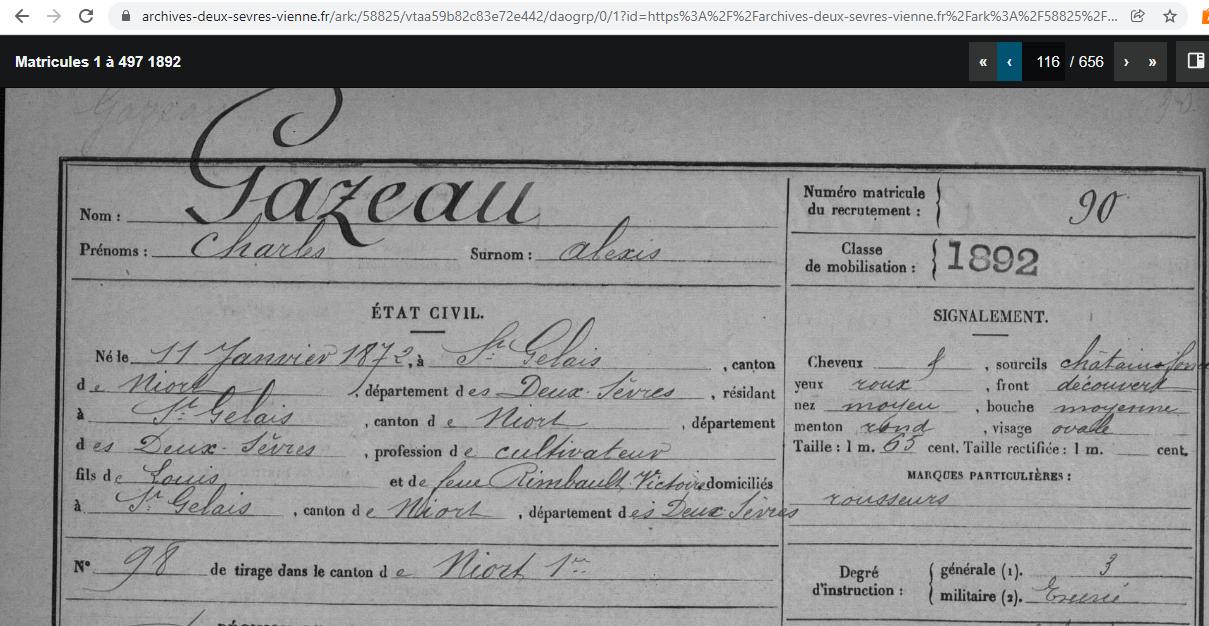 archives-deux-sevres-vienne.fr/ark:/58825/vtaa59b82c83e72e442/daogrp/0/1?id=https%3A%2F%2Farchives-deux-sevres-vienne.fr%2Fark%3A%2F58825%2F...
Matricules 1 à 497 1892
« ‹ 116 / 656 › »
Nom : Gazeau
Prénoms : Charles Surnom : Alexis
Numéro matricule du recrutement : 90
Classe de mobilisation : 1892
ÉTAT CIVIL.
Né le 11 Janvier 1872, à St Gelais, canton
de Niort, département des Deux-Sèvres, résidant
à St Gelais, canton de Niort, département
des Deux-Sèvres, profession de cultivateur
fils de Louis et de feue Rimbault Victoire domiciliés
à St Gelais, canton de Niort, département des Deux Sèvres
N° 98 de tirage dans le canton de Niort 1er
SIGNALEMENT.
Cheveux &, sourcils châtain foncé
yeux roux, front découvert
nez moyen, bouche moyenne
menton rond, visage ovale
Taille : 1 m. 65 cent. Taille rectifiée : 1 m. cent.
MARQUES PARTICULIÈRES :
rousseurs
Degré d'instruction : générale (1). 3
militaire (2). Exercé